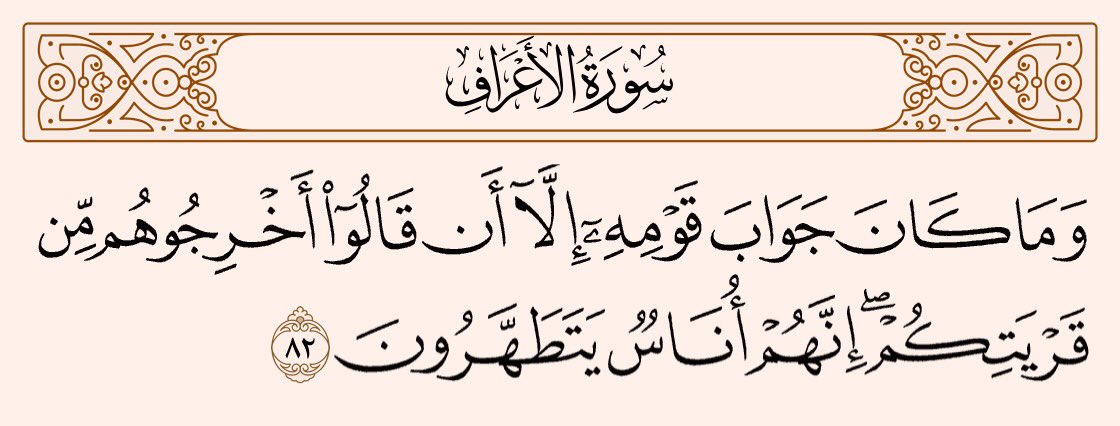 سُورَةُ الأَعْرَافِ
وَمَا كَانَ جَوَابَ قَوْمِهِۦٓ إِلَّآ أَن قَالُوٓا۟ أَخْرِجُوهُم مِّن
قَرْيَتِكُمْ ۖ إِنَّهُمْ أُنَاسٌ يَتَطَهَّرُونَ ٨٢